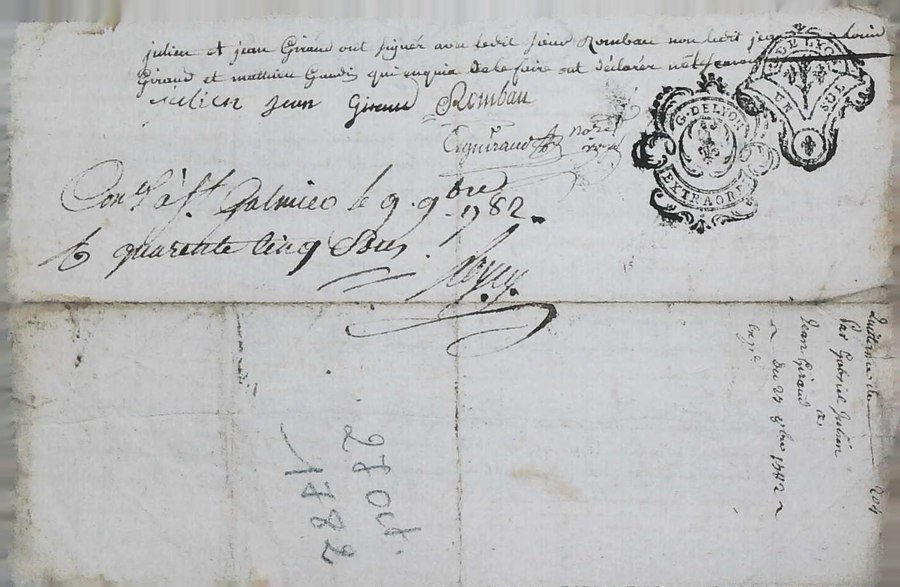 julien et jean Giraud ont signér avec ledit sieur Rombau non ledit jean
Giraud et mathieu Gaudin qui enquis de le faire ont déclarer
julien jean Giraud Rombau
G. DE LYON
UN SOL
G. DE LYON
EXTRAORD
Con.lé à St Galmier le 9. 9bre
1782.
quarente cinq Sous
Quittance de 204
Par Gabriel Julien
a
Jean Giraud
du 27 8bre 1782
27 Oct.
1782